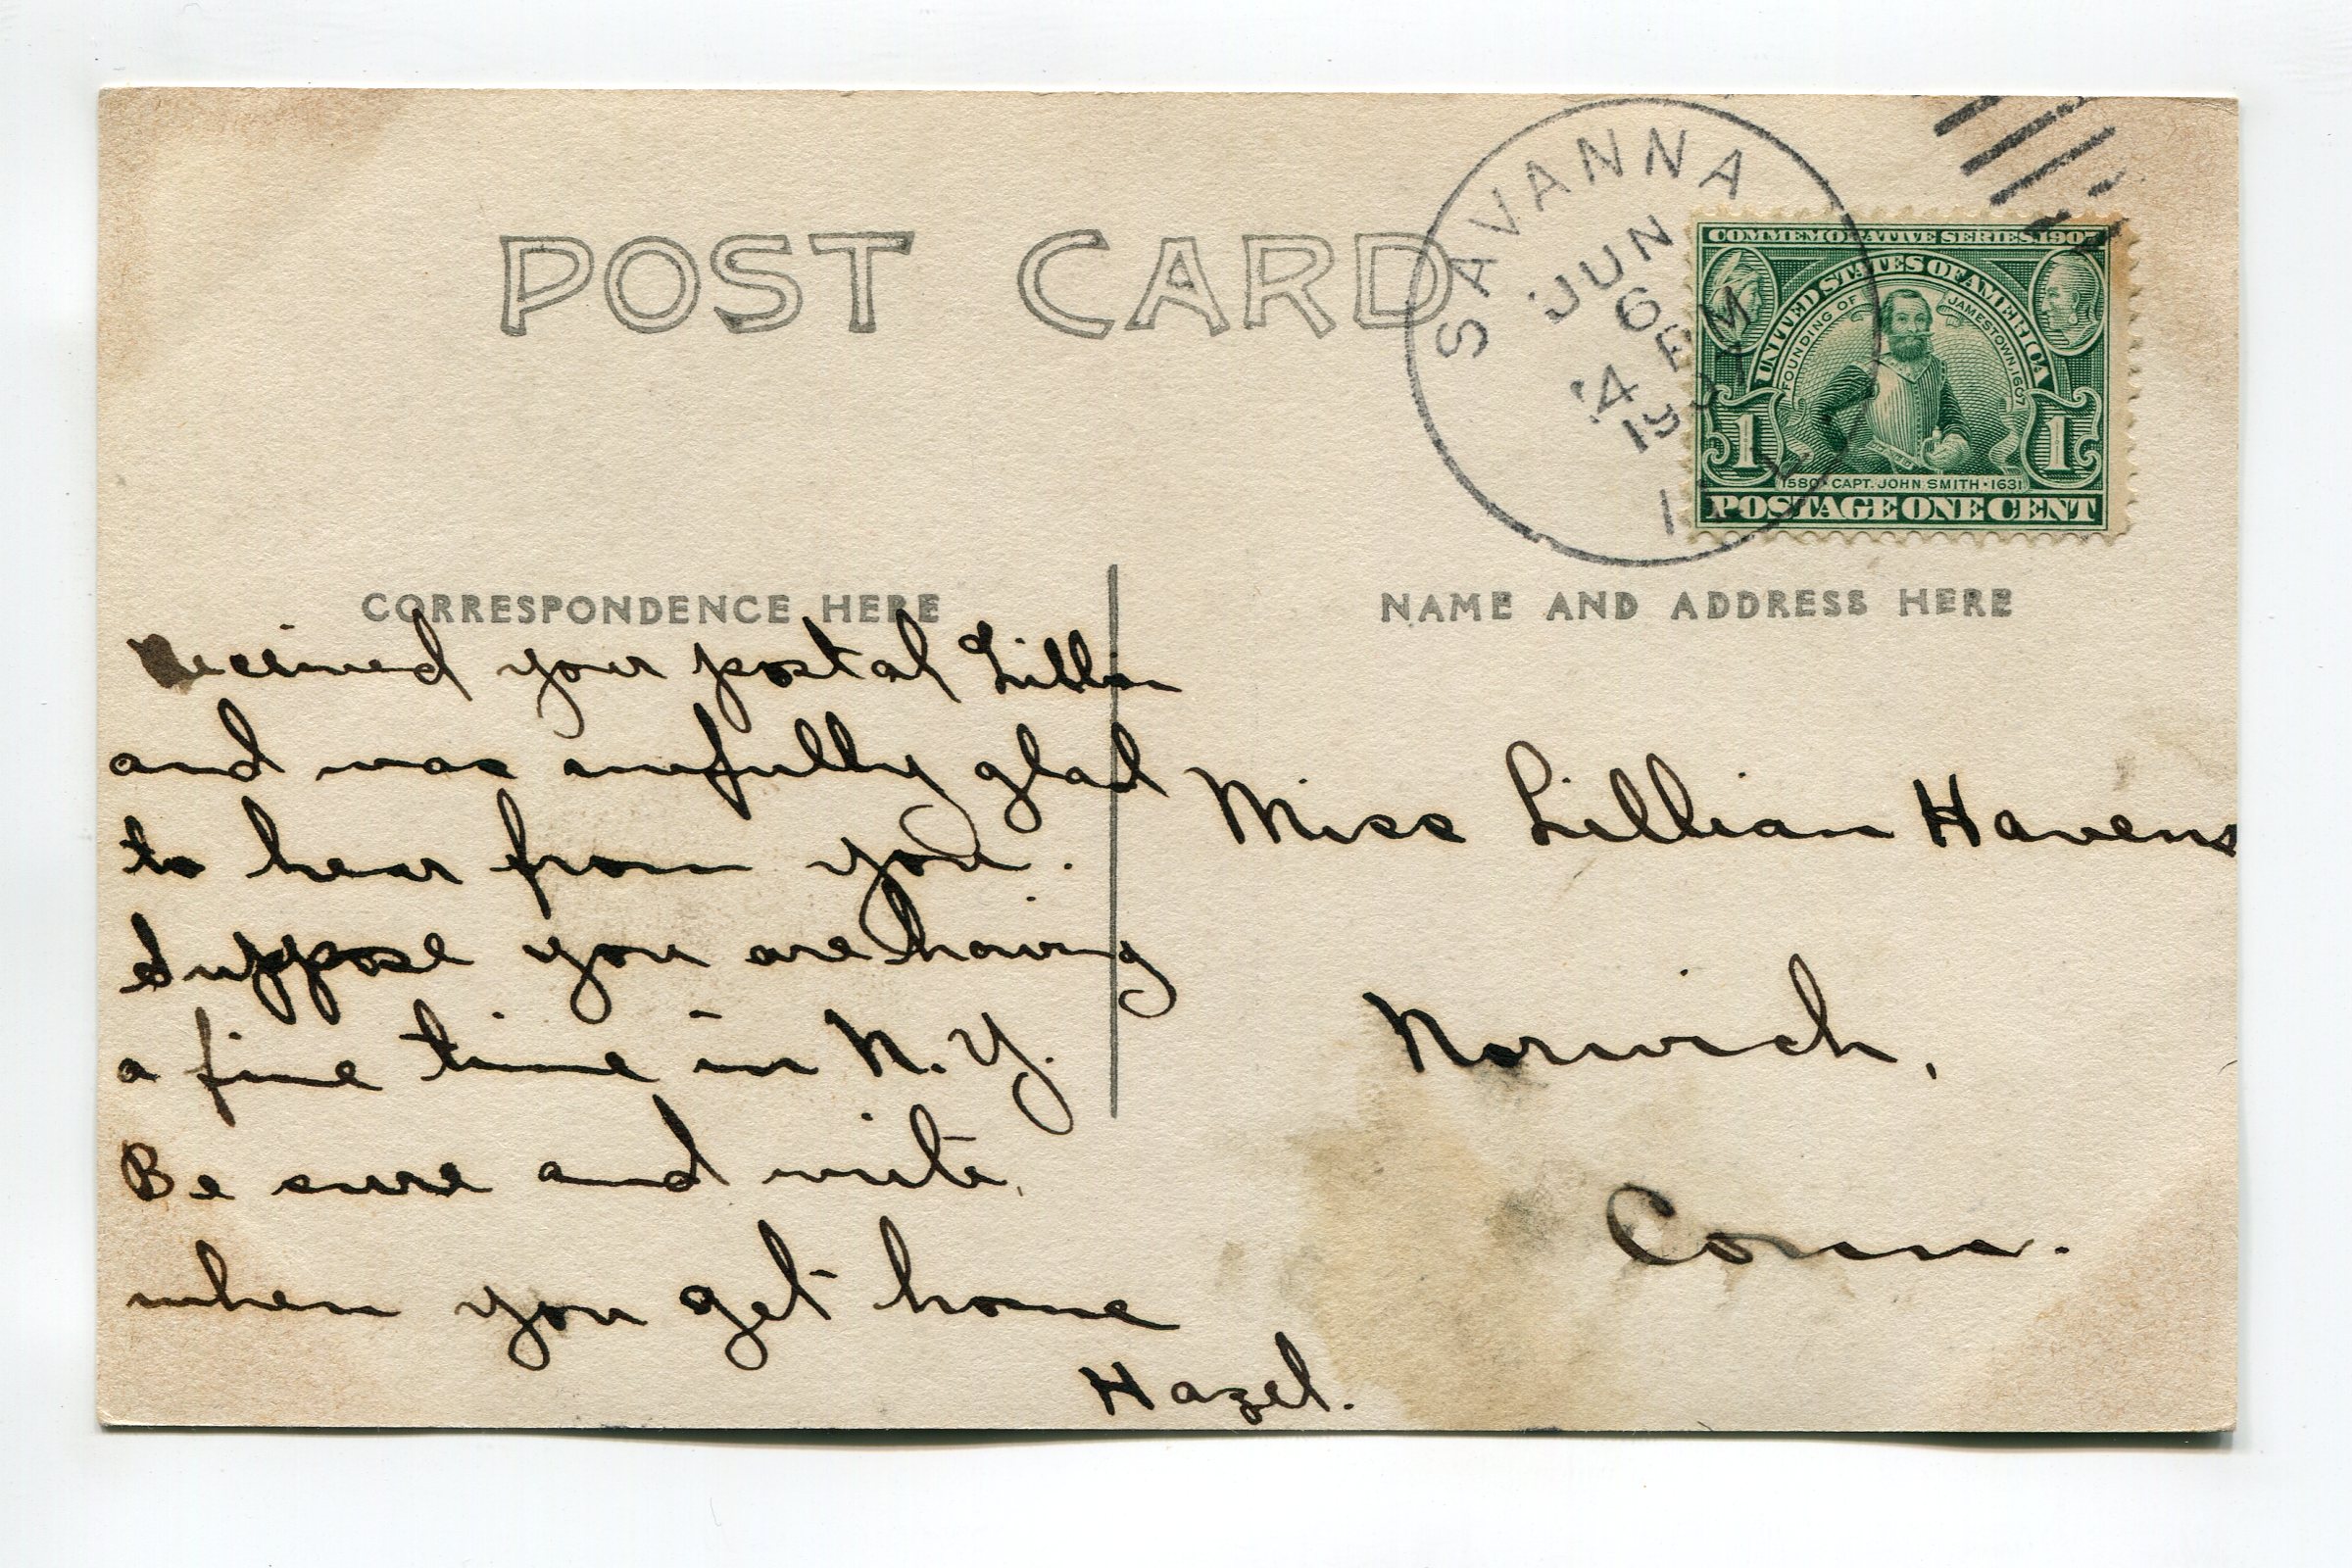 POST CARD
SAVANNA
JUN
6
4 PM
1907
ILL
COMMEMORATIVE SERIES 1907
UNITED STATES OF AMERICA
FOUNDING OF JAMESTOWN, 1607
1 1
1580 · CAPT. JOHN SMITH · 1631
POSTAGE ONE CENT
CORRESPONDENCE HERE
Received your postal Lillian
and was awfully glad
to hear from you.
Suppose you are having
a fine time in N.Y.
Be sure and write
when you get home
Hazel.
NAME AND ADDRESS HERE
Miss Lillian Havens
Norwich,
Conn.